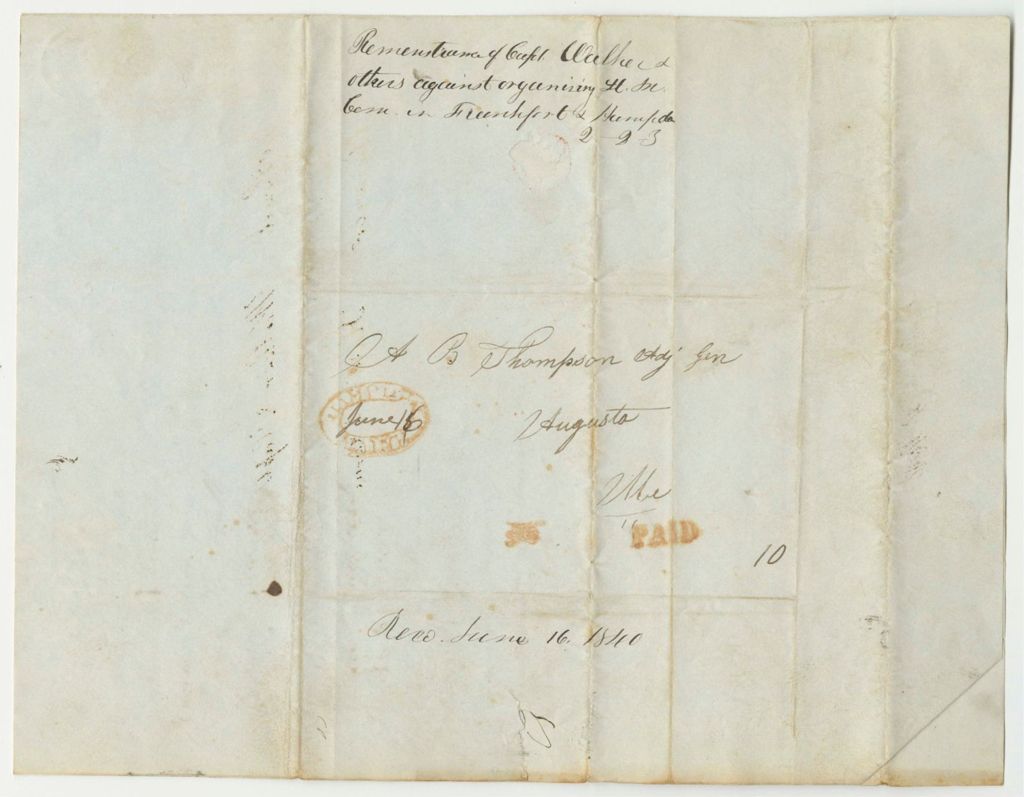 Remonstrance of Capt Walker &
others against organizing H. In.
Com. in Frankfort & Hampden
2 - 2 3
A B Thompson Adj Gen
HAMPDEN
June 16
Augusta
Me
"
PAID
10
Recd. June 16. 1840